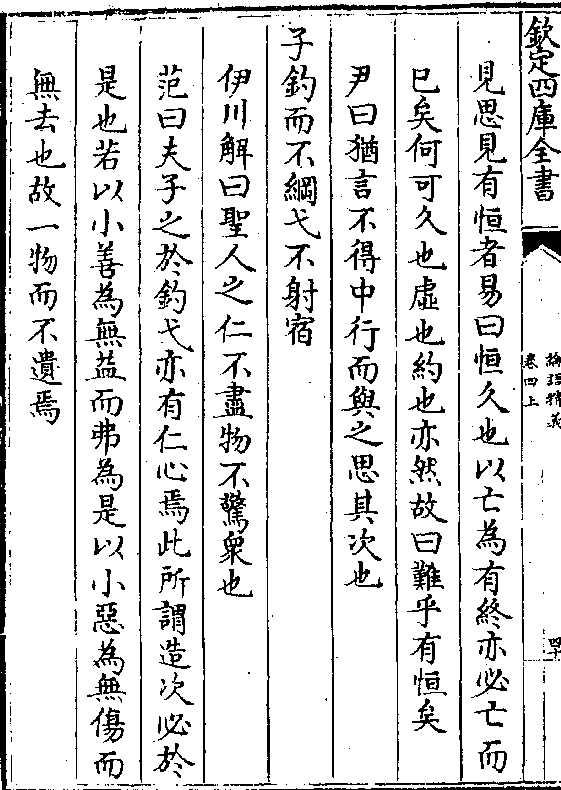 欽定四庫全書
論語精義
卷四上
見思見有恒者易曰恒久也以亡為有終亦必亡而
已矣何可久也虛也約也亦然故曰難乎有恒矣
尹曰猶言不得中行而與之思其次也
子釣而不綱弋不射宿
伊川解曰聖人之仁不盡物不驚衆也
范曰夫子之於釣弋亦有仁心焉此所謂造次必於
是也若以小善為無益而弗為是以小惡為無傷而
無去也故一物而不遺焉